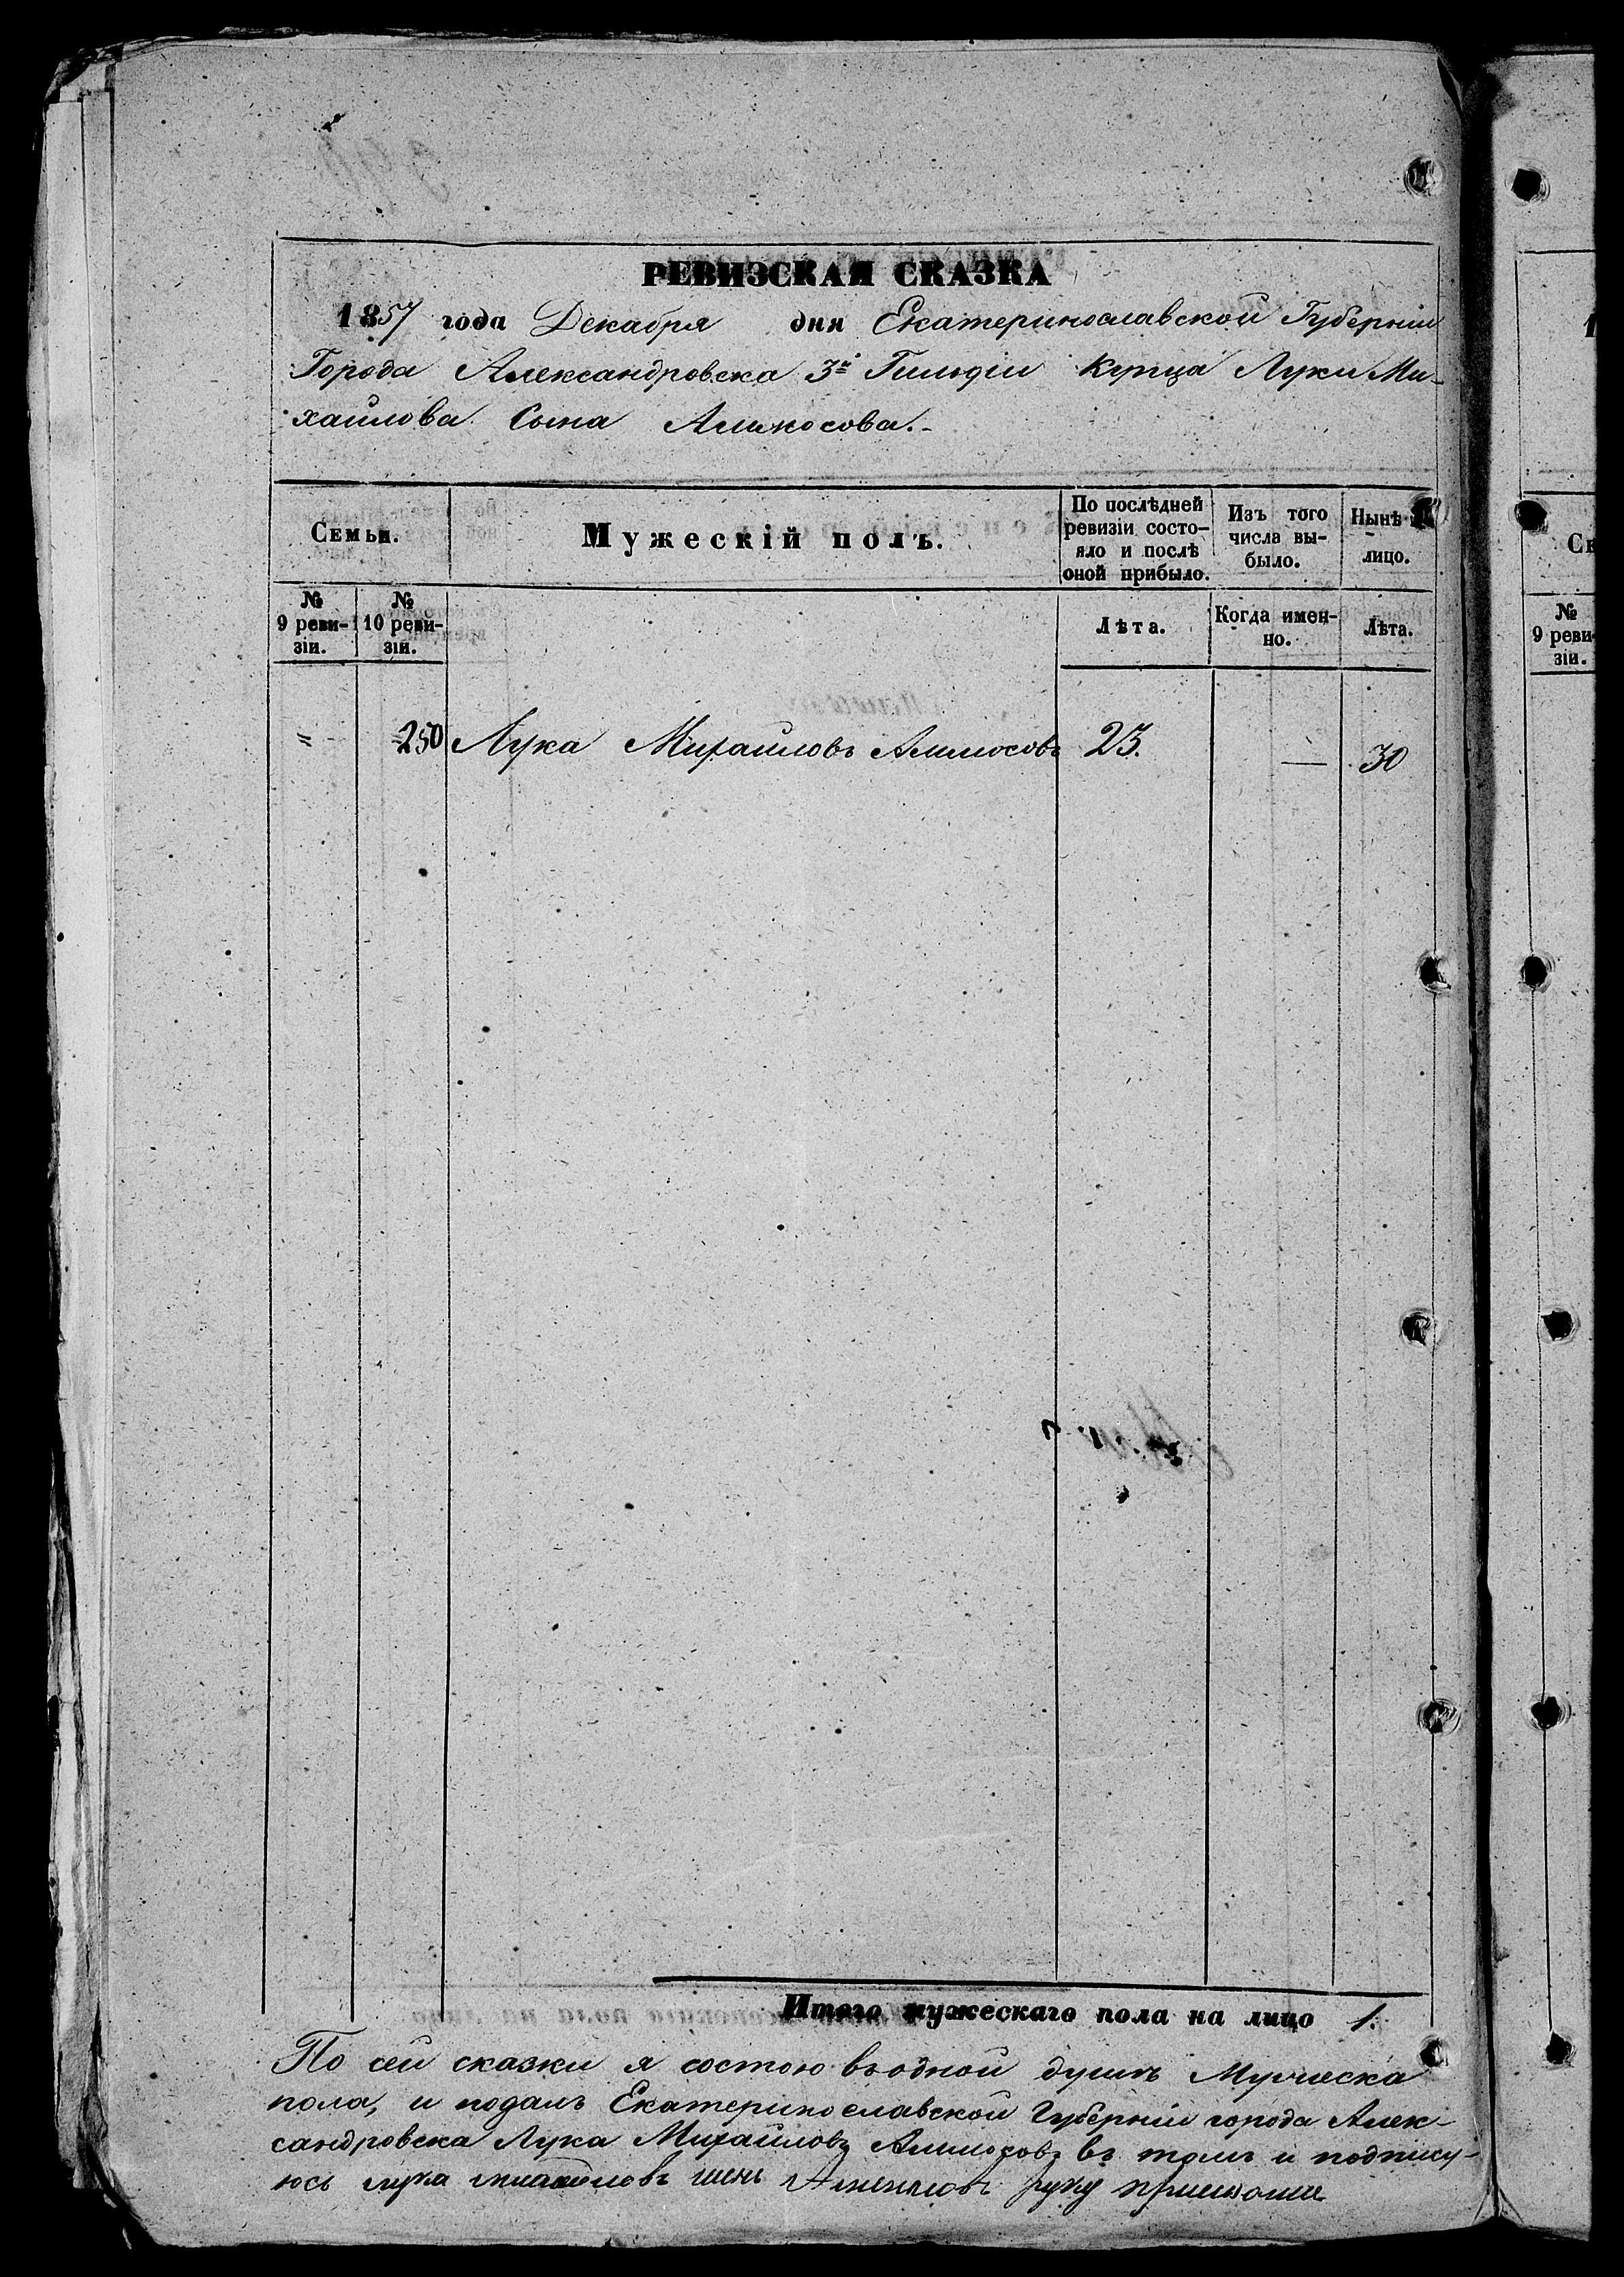 РЕВИЗСКАЯ СКАЗКА
1857 года Декабря дня Екатеринославской Губерніи
Города Александровска 3й Гильдіи Купца Луки Ми-
хайлова Сына
Семьи.
Мужескій полъ.
По послѣдней
ревизіи состо-
яло и послѣ
оной прибыло.
Изъ того
числа вы-
было.
Нынѣ
лицо.
№
9 реви-
зіи.
№
10 реви-
зіи.
Лѣта.
Когда имен-
но.
Лѣта.
〃 250 Лука Михайловъ 23. — 30
Итого мужескаго пола на лицо 1.
По сей сказки я состою въ одной душѣ Мужеска
пола, и подалъ Екатеринославской Губерніи города Алек-
сандровска Лука Михайловъ въ томъ и подпису-
юсь лука руку
Се
№
9 реви-
зіи.
1